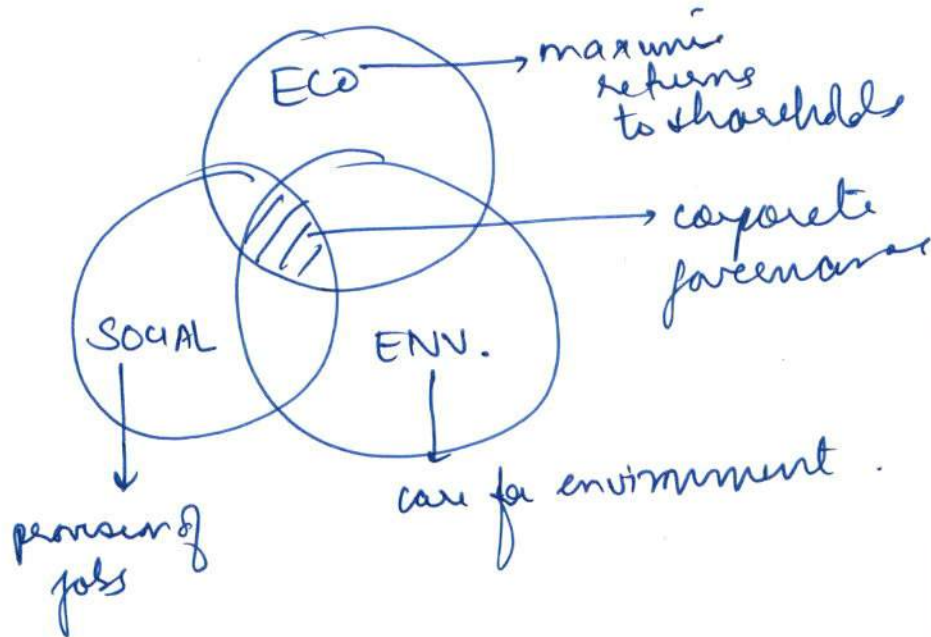 ECO
maximi
returns
to shareholds
corporate
governance
SOCIAL
ENV.
care for environment.
provision of
jobs